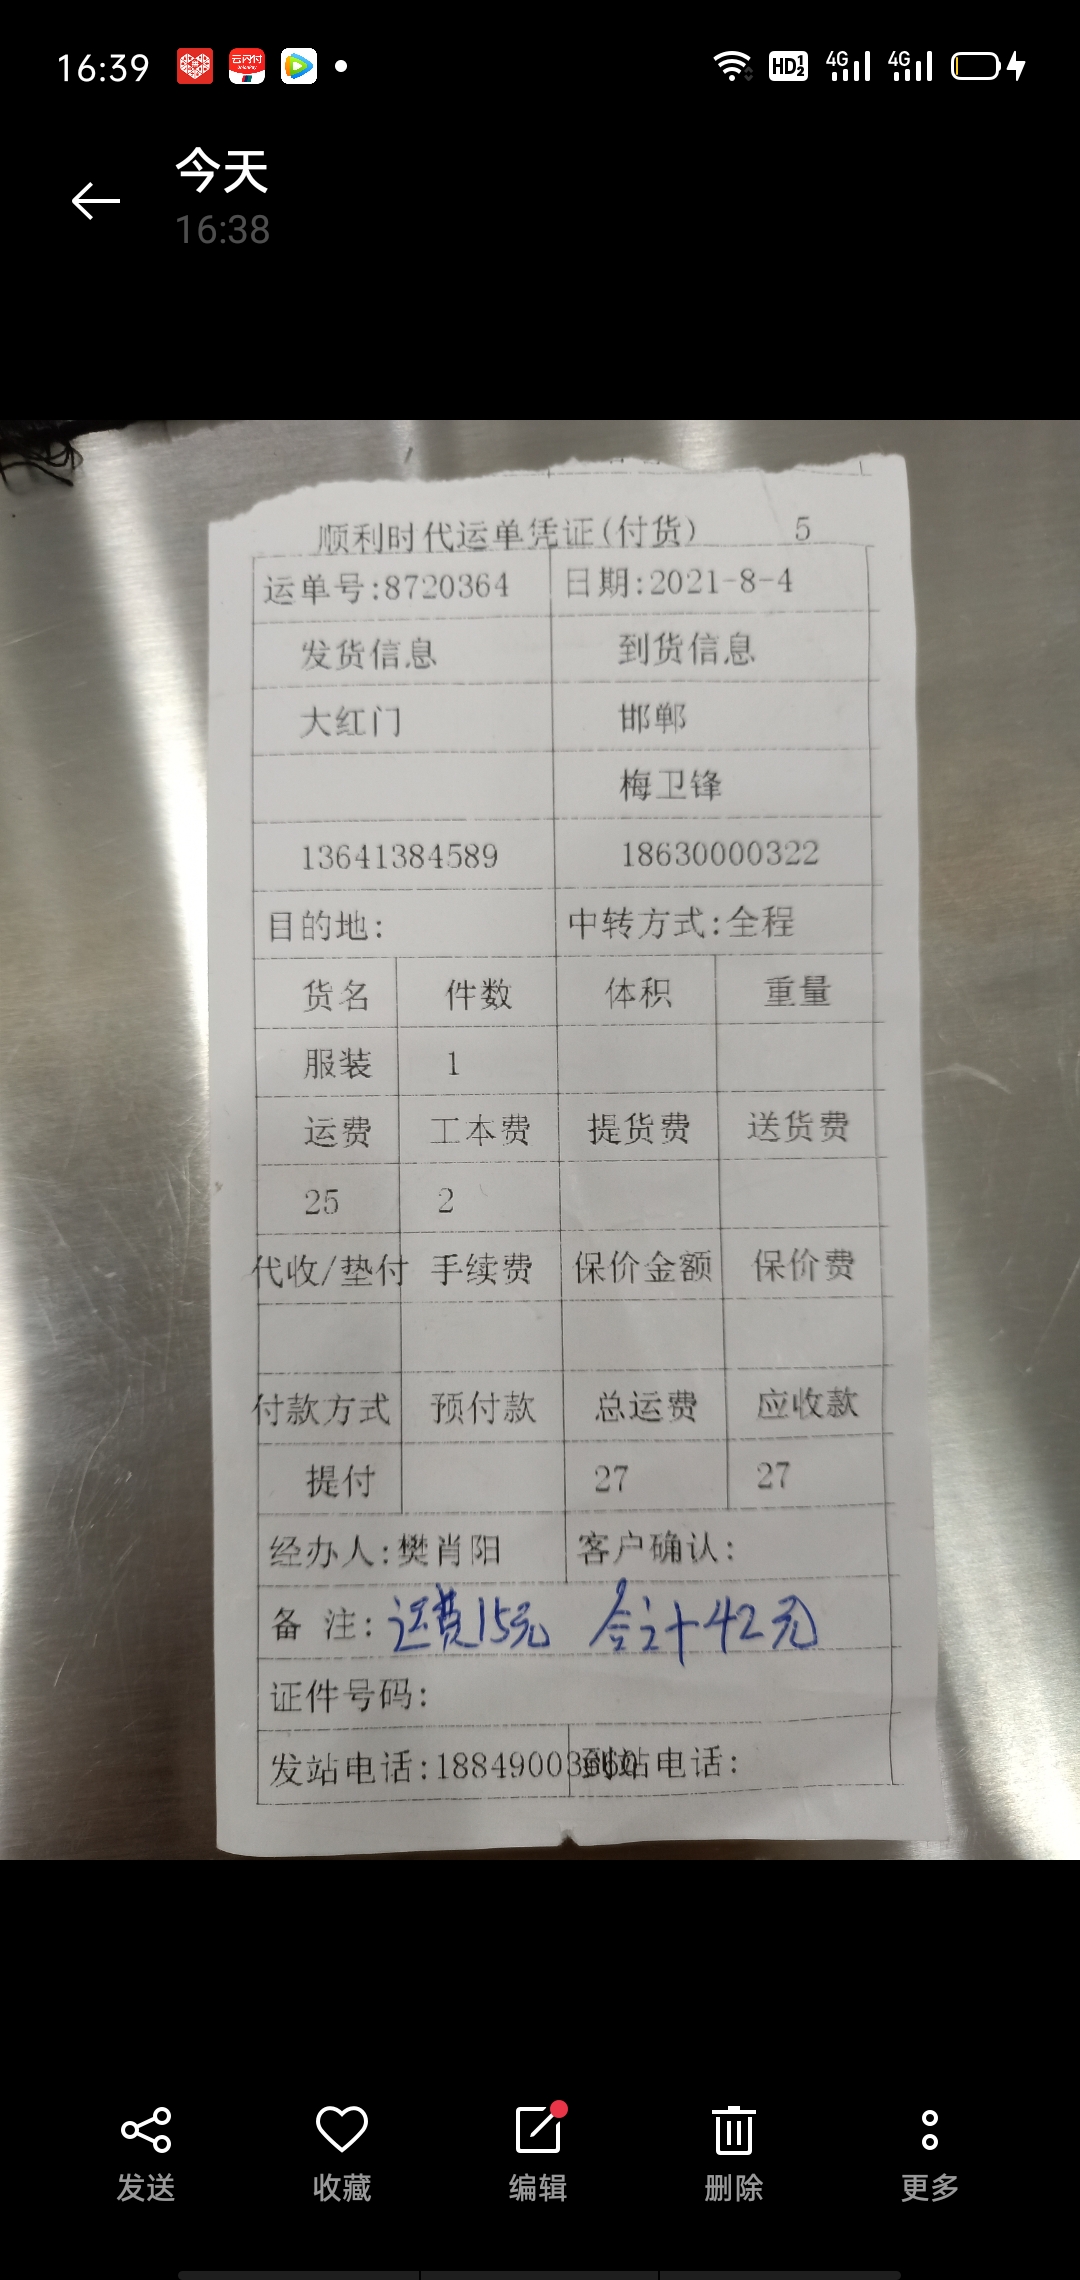 16:39 云闪付 HD1 2 4G 4G
今天
16:38
顺利时代运单凭证(付货) 5
运单号:8720364 日期:2021-8-4
发货信息 到货信息
大红门 邯郸
梅卫锋
13641384589 18630000322
目的地: 中转方式:全程
货名 件数 体积 重量
服装 1
运费 工本费 提货费 送货费
25 2
代收/垫付 手续费 保价金额 保价费
付款方式 预付款 总运费 应收款
提付 27 27
经办人:樊肖阳 客户确认:
备 注: 运费15元 合计42元
证件号码:
发站电话:18849003660 到站电话:
发送 收藏 编辑 删除 更多